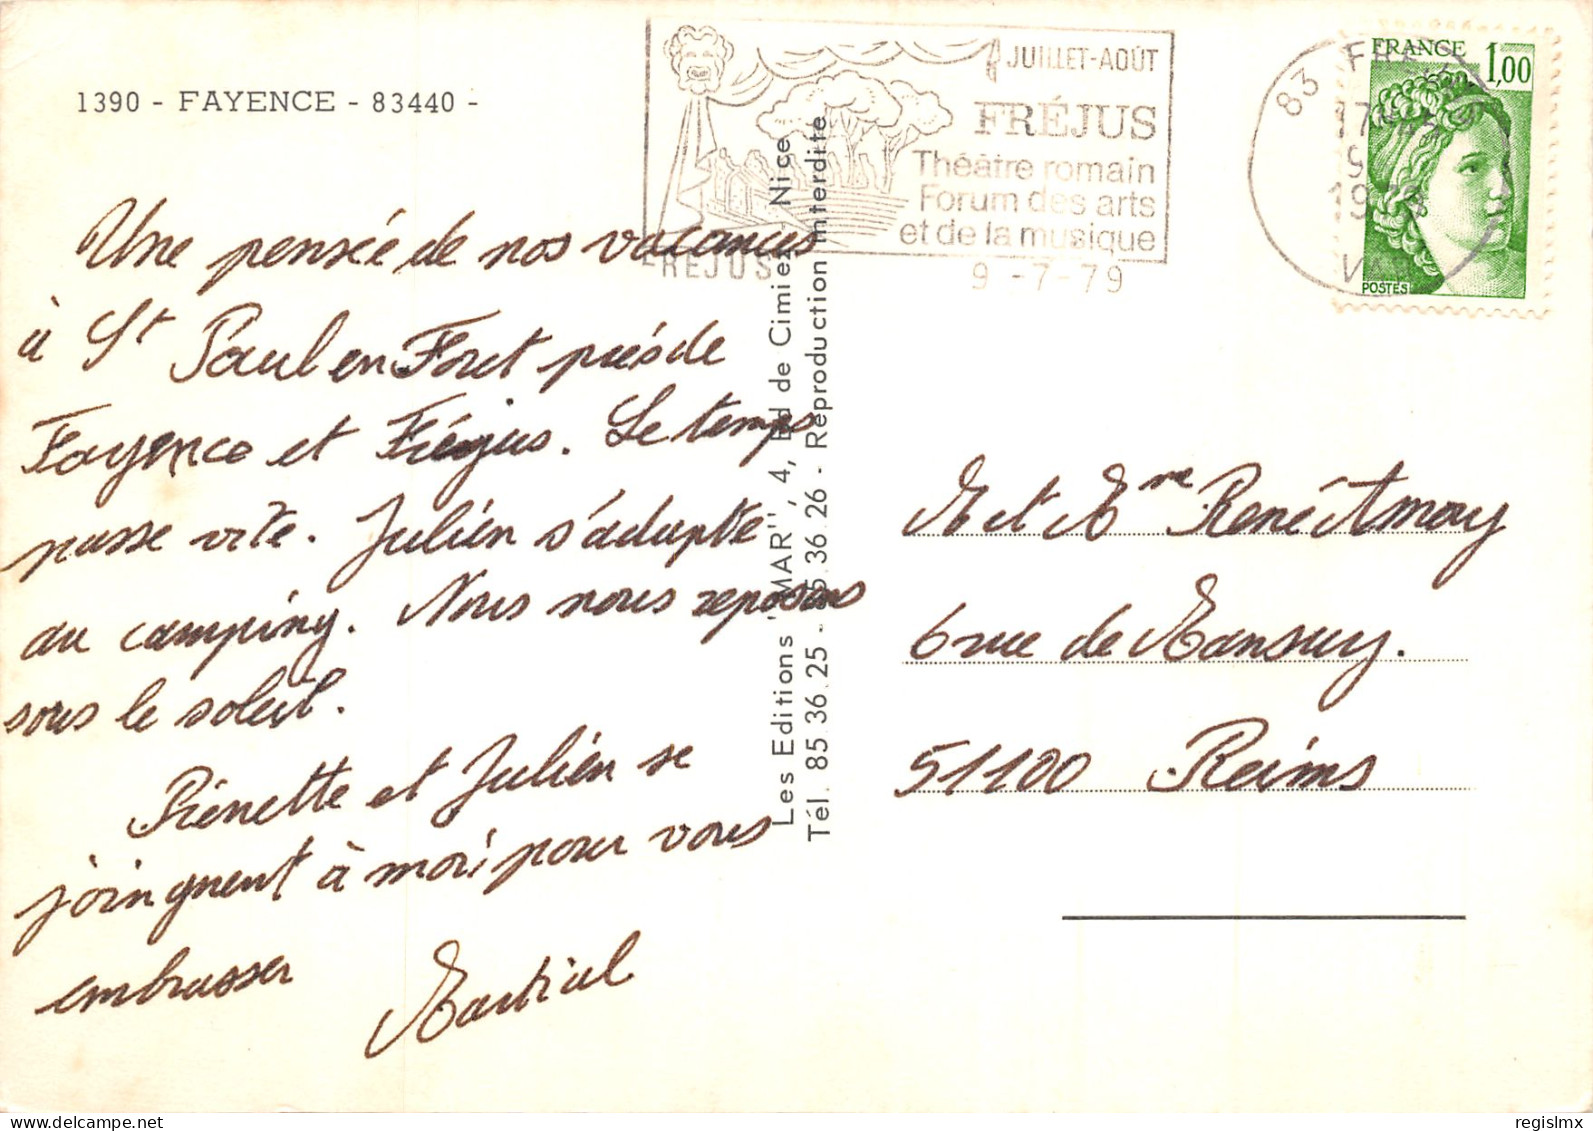 1390 - FAYENCE - 83440 -
Une pensée de nos vacances
à St Paul en Foret près de
Fayence et Fréjus. Le temps
passe vite. Julien s'adapte
au camping. Nous nous reposons
sous le soleil.
Pierrette et Julien se
joingnent à moi pour vous
embrasser
Martial
Les Editions "MAR", 4, Bd de Cimiez Nice
Tél. 85.36.25 - 85.36.26 - Reproduction interdite
JUILLET-AOÛT
FRÉJUS
Théâtre romain
Forum des arts
et de la musique
FREJUS
9 -7-79
83 FREJUS
17H
9
1979
VAR
FRANCE 1,00
POSTES
M et Mme René Amory
6 rue de Mansuy.
51100 Reims
regislmx